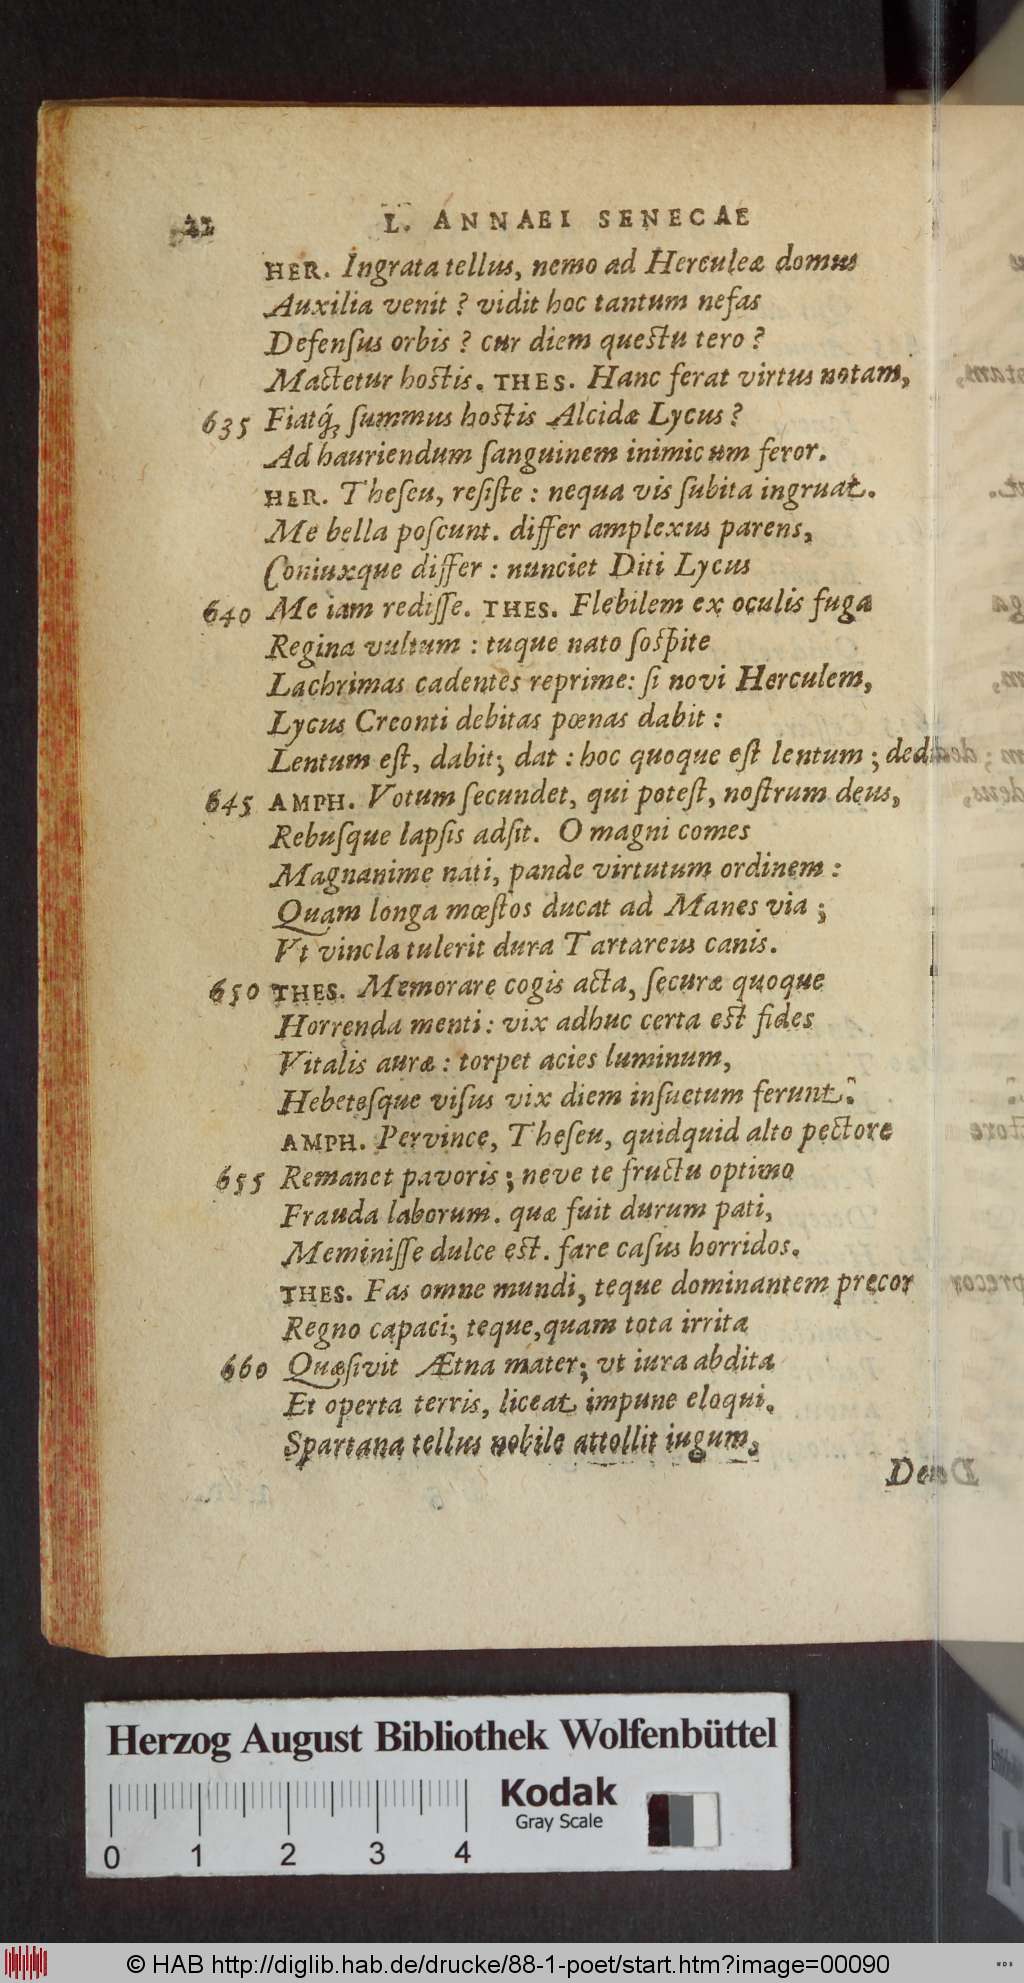 22 L. ANNAEI SENECAE
HER. Ingrata tellus, nemo ad Herculeæ domus
Auxilia venit ? vidit hoc tantum nefas
Defensus orbis ? cur diem questu tero ?
Mactetur hostis. THES. Hanc ferat virtus notam,
635 Fiatq́; summus hostis Alcidæ Lycus ?
Ad hauriendum sanguinem inimicum feror.
HER. Theseu, resiste : nequa vis subita ingruat.
Me bella poscunt. differ amplexus parens,
Coniuxque differ : nunciet Diti Lycus
640 Me iam redisse. THES. Flebilem ex oculis fuga
Regina vultum : tuque nato sospite
Lachrimas cadentes reprime: si novi Herculem,
Lycus Creonti debitas pœnas dabit :
Lentum est, dabit; dat : hoc quoque est lentum ; dedit.
645 AMPH. Votum secundet, qui potest, nostrum deus,
Rebusque lapsis adsit. O magni comes
Magnanime nati, pande virtutum ordinem :
Quam longa mœstos ducat ad Manes via ;
Vt vincla tulerit dura Tartareus canis.
650 THES. Memorare cogis acta, securæ quoque
Horrenda menti : vix adhuc certa est fides
Vitalis auræ : torpet acies luminum,
Hebetesque visus vix diem insuetum ferunt.
AMPH. Pervince, Theseu, quidquid alto pectore
655 Remanet pavoris ; neve te fructu optimo
Frauda laborum. quæ fuit durum pati,
Meminisse dulce est. fare casus horridos.
THES. Fas omne mundi, teque dominantem precor
Regno capaci; teque, quam tota irrita
660 Quæsivit Ætna mater; vt iura abdita
Et operta terris, liceat impune eloqui.
Spartana tellus nobile attollit iugum,
Den
Herzog August Bibliothek Wolfenbüttel
Kodak
Gray Scale
0 1 2 3 4
© HAB http://diglib.hab.de/drucke/88-1-poet/start.htm?image=00090